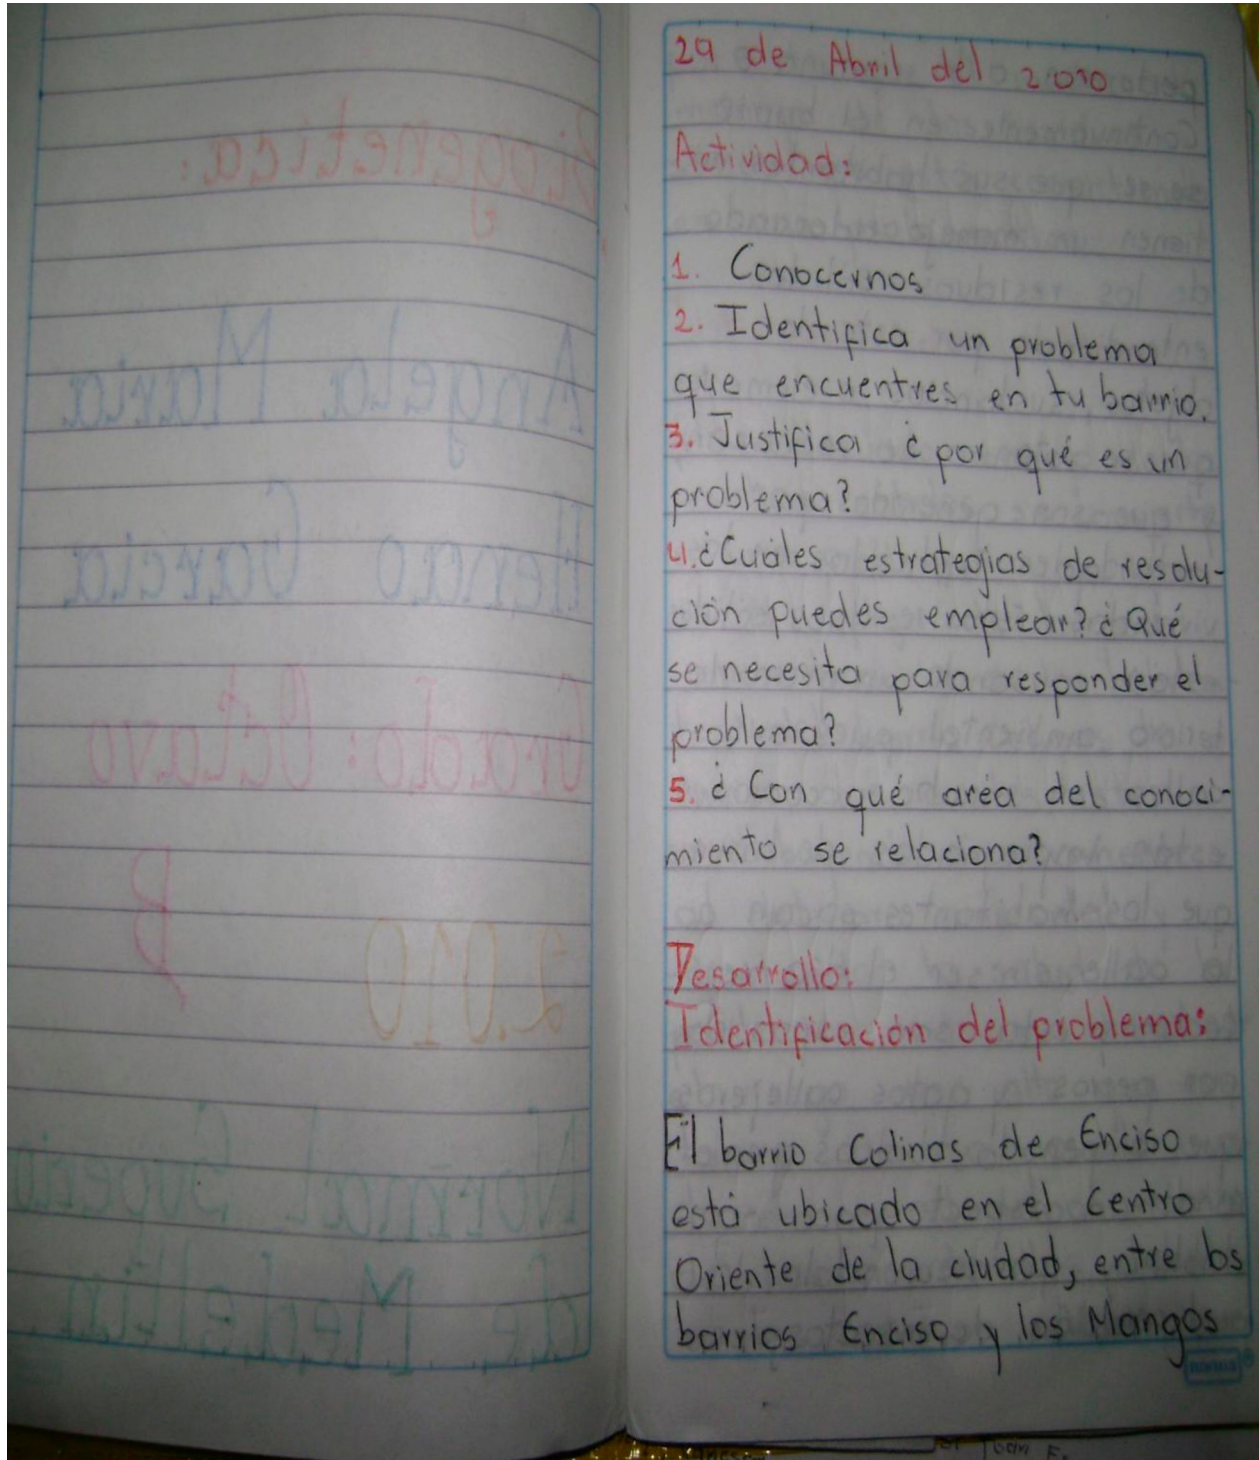 29 de Abril del 2010
Actividad:
1. Conocernos
2. Identifica un problema
que encuentres en tu barrio.
3. Justifica ¿por qué es un
problema?
4. ¿Cuáles estrategias de resolu-
ción puedes emplear? ¿Qué
se necesita para responder el
problema?
5. ¿Con qué aréa del conoci-
miento se relaciona?
Desarrollo:
Identificación del problema:
El barrio Colinas de Enciso
está ubicado en el Centro
Oriente de la ciudad, entre los
barrios Enciso y los Mangos
Angela Maria
Henao Garcia
Grado: Octavo
B
2.010
Normal Superio
de Medellin